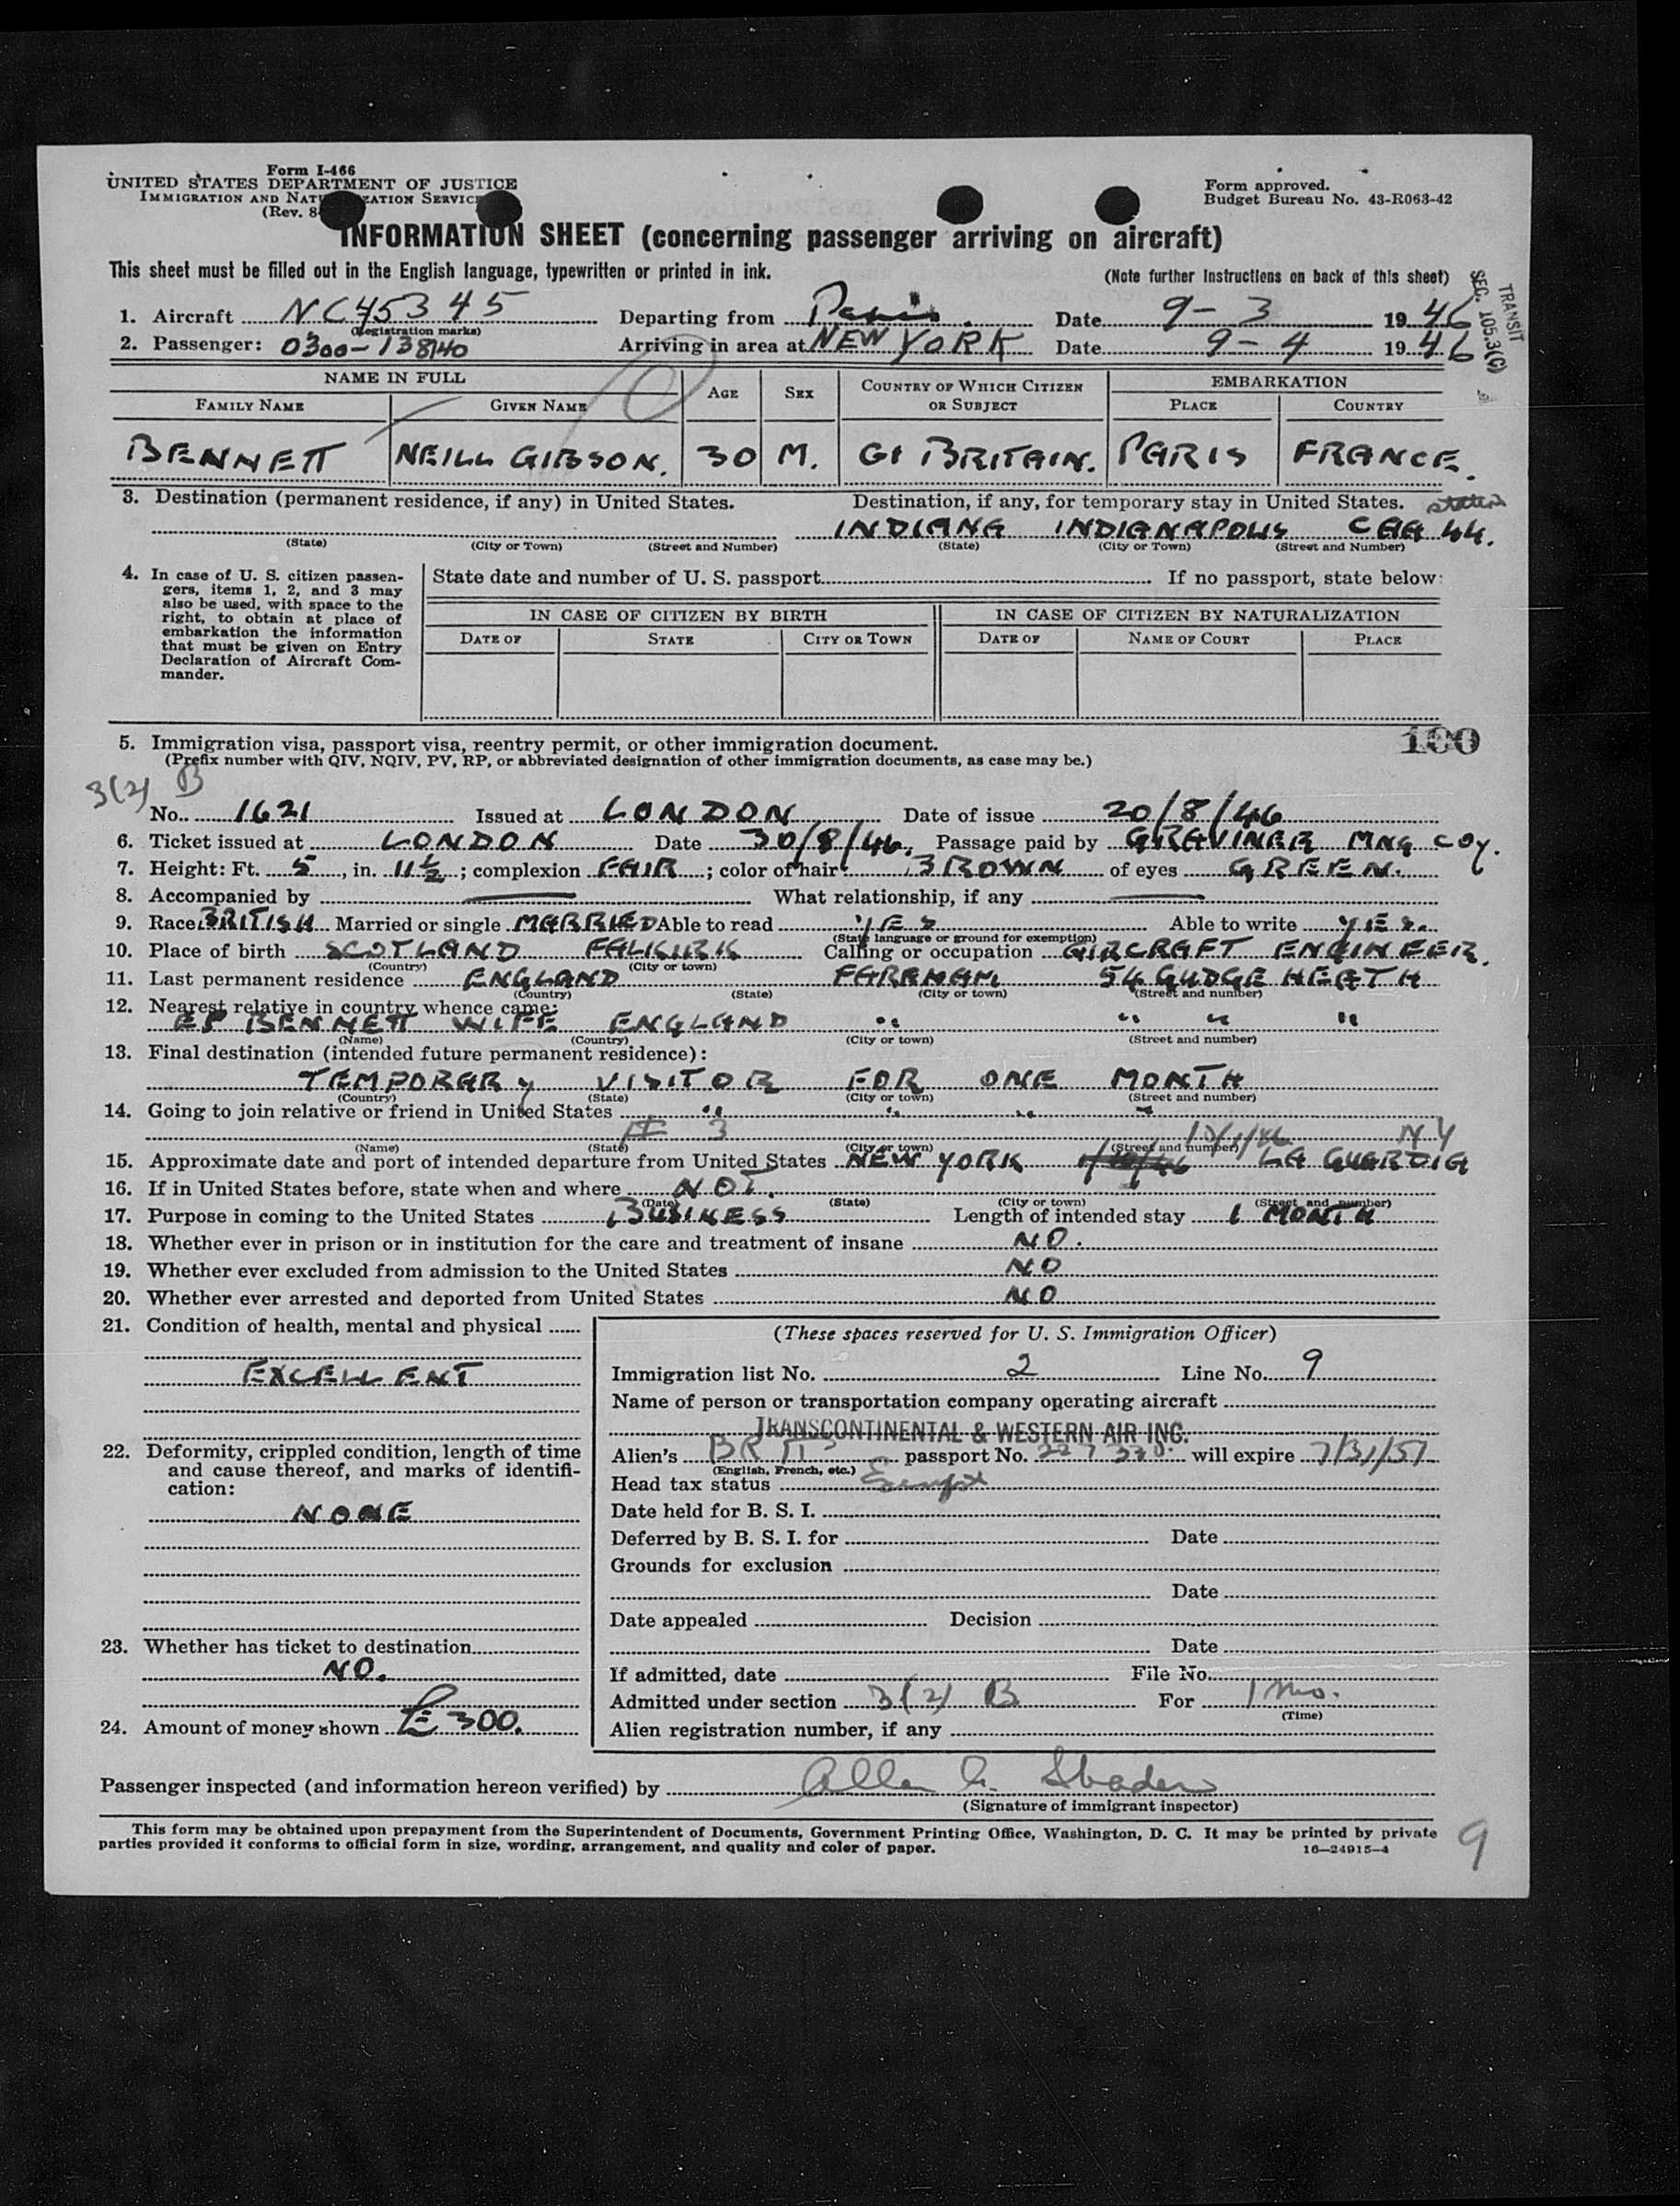 Form I-466
UNITED STATES DEPARTMENT OF JUSTICE
IMMIGRATION AND NATURALIZATION SERVICE
(Rev. 8-
Form approved.
Budget Bureau No. 43-R063-42
INFORMATION SHEET (concerning passenger arriving on aircraft)
This sheet must be filled out in the English language, typewritten or printed in ink. (Note further instructions on back of this sheet)
TRANSIT
SEC. 105.3(C)
1. Aircraft NC45345 Departing from Paris. Date 9-3 1946
(Registration marks)
2. Passenger: 0300-138140 Arriving in area at NEW YORK Date 9-4 1946
NAME IN FULL AGE SEX COUNTRY OF WHICH CITIZEN OR SUBJECT EMBARKATION
FAMILY NAME GIVEN NAME PLACE COUNTRY
BENNETT NEILL GIBSON. 30 M. Gt BRITAIN. PARIS FRANCE.
3. Destination (permanent residence, if any) in United States. Destination, if any, for temporary stay in United States.
INDIANA INDIANAPOLIS CAA 44.
(State) (City or Town) (Street and Number) (State) (City or Town) (Street and Number)
4. In case of U. S. citizen passengers, items 1, 2, and 3 may also be used, with space to the right, to obtain at place of embarkation the information that must be given on Entry Declaration of Aircraft Commander.
State date and number of U. S. passport If no passport, state below:
IN CASE OF CITIZEN BY BIRTH IN CASE OF CITIZEN BY NATURALIZATION
DATE OF STATE CITY OR TOWN DATE OF NAME OF COURT PLACE
100
5. Immigration visa, passport visa, reentry permit, or other immigration document.
(Prefix number with QIV, NQIV, PV, RP, or abbreviated designation of other immigration documents, as case may be.)
3(2) B
No. 1621 Issued at LONDON Date of issue 20/8/46
6. Ticket issued at LONDON Date 30/8/46. Passage paid by GRAVINER MNG COY.
7. Height: Ft. 5, in. 11½; complexion FAIR; color of hair BROWN of eyes GREEN.
8. Accompanied by — What relationship, if any —
9. Race BRITISH Married or single MARRIED Able to read YES Able to write YES.
(State language or ground for exemption)
10. Place of birth SCOTLAND FALKIRK Calling or occupation AIRCRAFT ENGINEER.
(Country) (City or town)
11. Last permanent residence ENGLAND FAREHAM 54 GUDGE HEATH
(Country) (State) (City or town) (Street and number)
12. Nearest relative in country whence came:
EP BENNETT WIFE ENGLAND " " " "
(Name) (Country) (City or town) (Street and number)
13. Final destination (intended future permanent residence):
TEMPORARY VISITOR FOR ONE MONTH
(Country) (State) (City or town) (Street and number)
14. Going to join relative or friend in United States " " " "
(Name) (State) (City or town) (Street and number)
NY
15. Approximate date and port of intended departure from United States NEW YORK LA GUARDIA
16. If in United States before, state when and where NOT.
(Date) (State) (City or town) (Street and number)
17. Purpose in coming to the United States BUSINESS Length of intended stay 1 MONTH
18. Whether ever in prison or in institution for the care and treatment of insane NO.
19. Whether ever excluded from admission to the United States NO
20. Whether ever arrested and deported from United States NO
21. Condition of health, mental and physical
EXCELLENT
22. Deformity, crippled condition, length of time and cause thereof, and marks of identification:
NONE
23. Whether has ticket to destination
NO.
24. Amount of money shown £300.
(These spaces reserved for U. S. Immigration Officer)
Immigration list No. 2 Line No. 9
Name of person or transportation company operating aircraft
TRANSCONTINENTAL & WESTERN AIR INC.
Alien's passport No. will expire 7/31/51
(English, French, etc.)
Head tax status Exempt
Date held for B. S. I.
Deferred by B. S. I. for Date
Grounds for exclusion
Date
Date appealed Decision
Date
If admitted, date File No.
Admitted under section 3(2) B For 1 mo.
(Time)
Alien registration number, if any
Passenger inspected (and information hereon verified) by
(Signature of immigrant inspector)
This form may be obtained upon prepayment from the Superintendent of Documents, Government Printing Office, Washington, D. C. It may be printed by private
parties provided it conforms to official form in size, wording, arrangement, and quality and color of paper. 16—24915-4
9